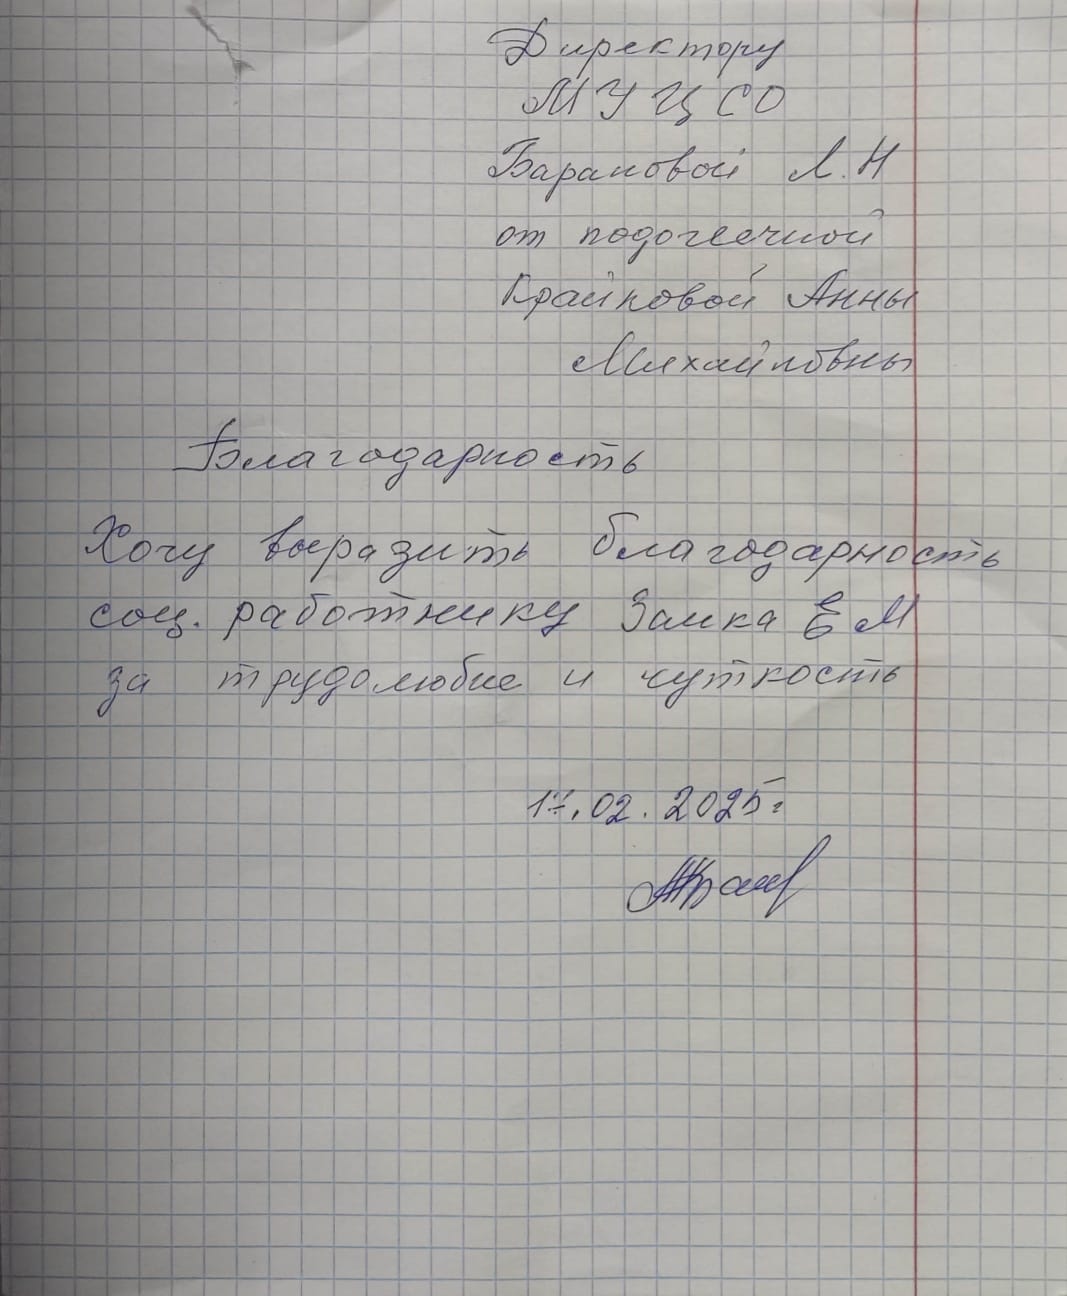 Директору
МУ ЦСО
Барановой Л.Н
от подопечной
Крайновой Анны
Михайловны
Благодарность
Хочу выразить благодарность
соц. работнику Заика Е М
за трудолюбие и чуткость
17.02.2025г